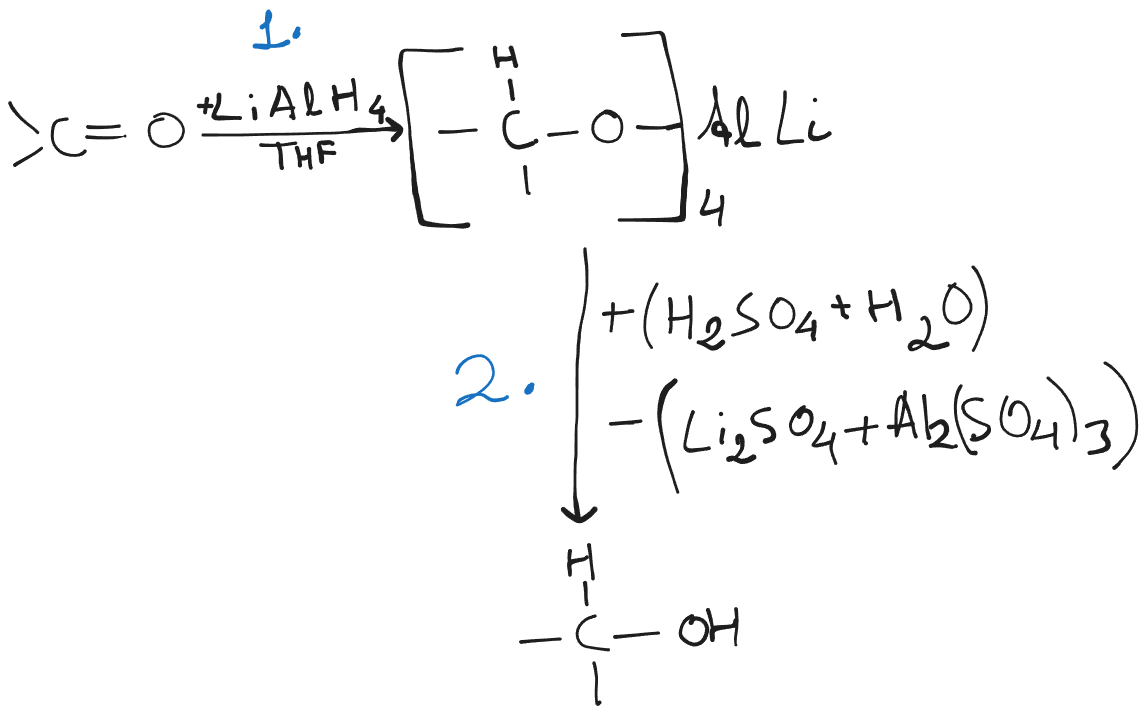 1.
C = O
+LiAlH4
THF
H
C - O
4
Al Li
2.
+(H2SO4 + H2O)
-(Li2SO4 + Al2(SO4)3)
H
C - OH